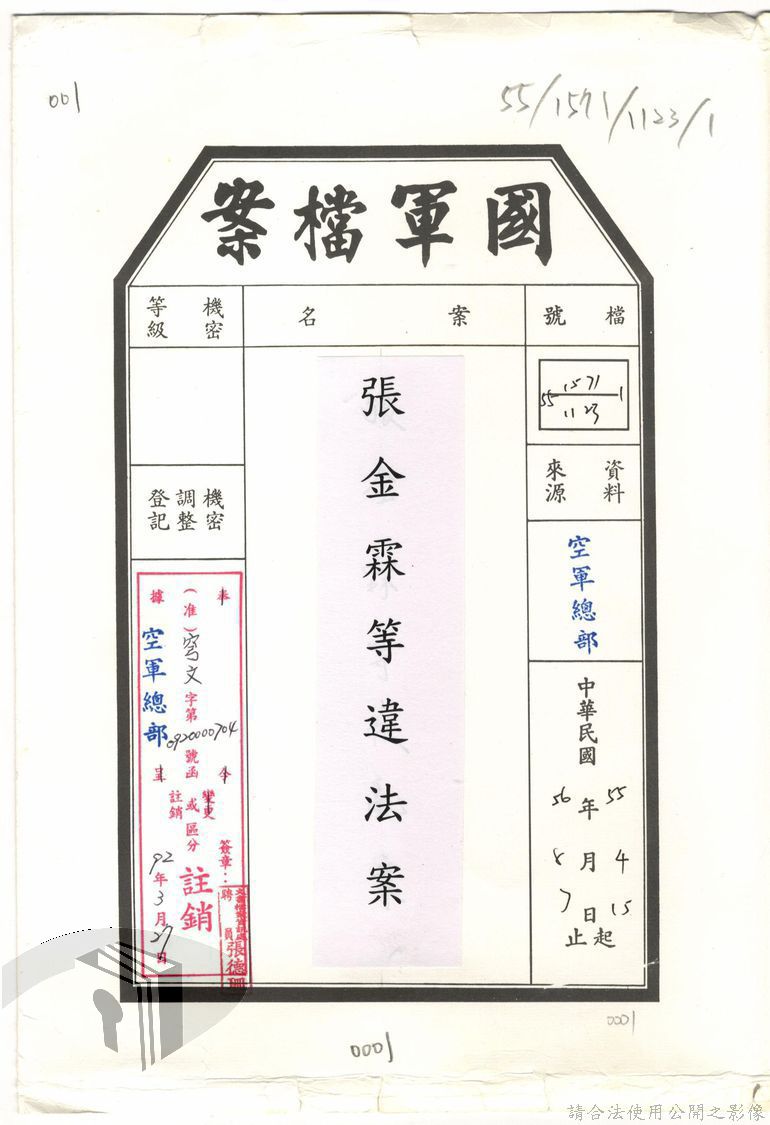 001
55/1571/1123/1
國軍檔案
檔號
案名
機密等級
55 1571 1
1123
資料來源
空軍總部
中華民國
55年4月15日起
56年8月7日止
張金霖等違法案
機密調整登記
奉 令
(准)穹文字第0920000704號函或區分
據 空軍總部
變更
註銷
註銷
簽章:
聘員張德珊
92年3月27日
0001
0001
請合法使用公開之影像